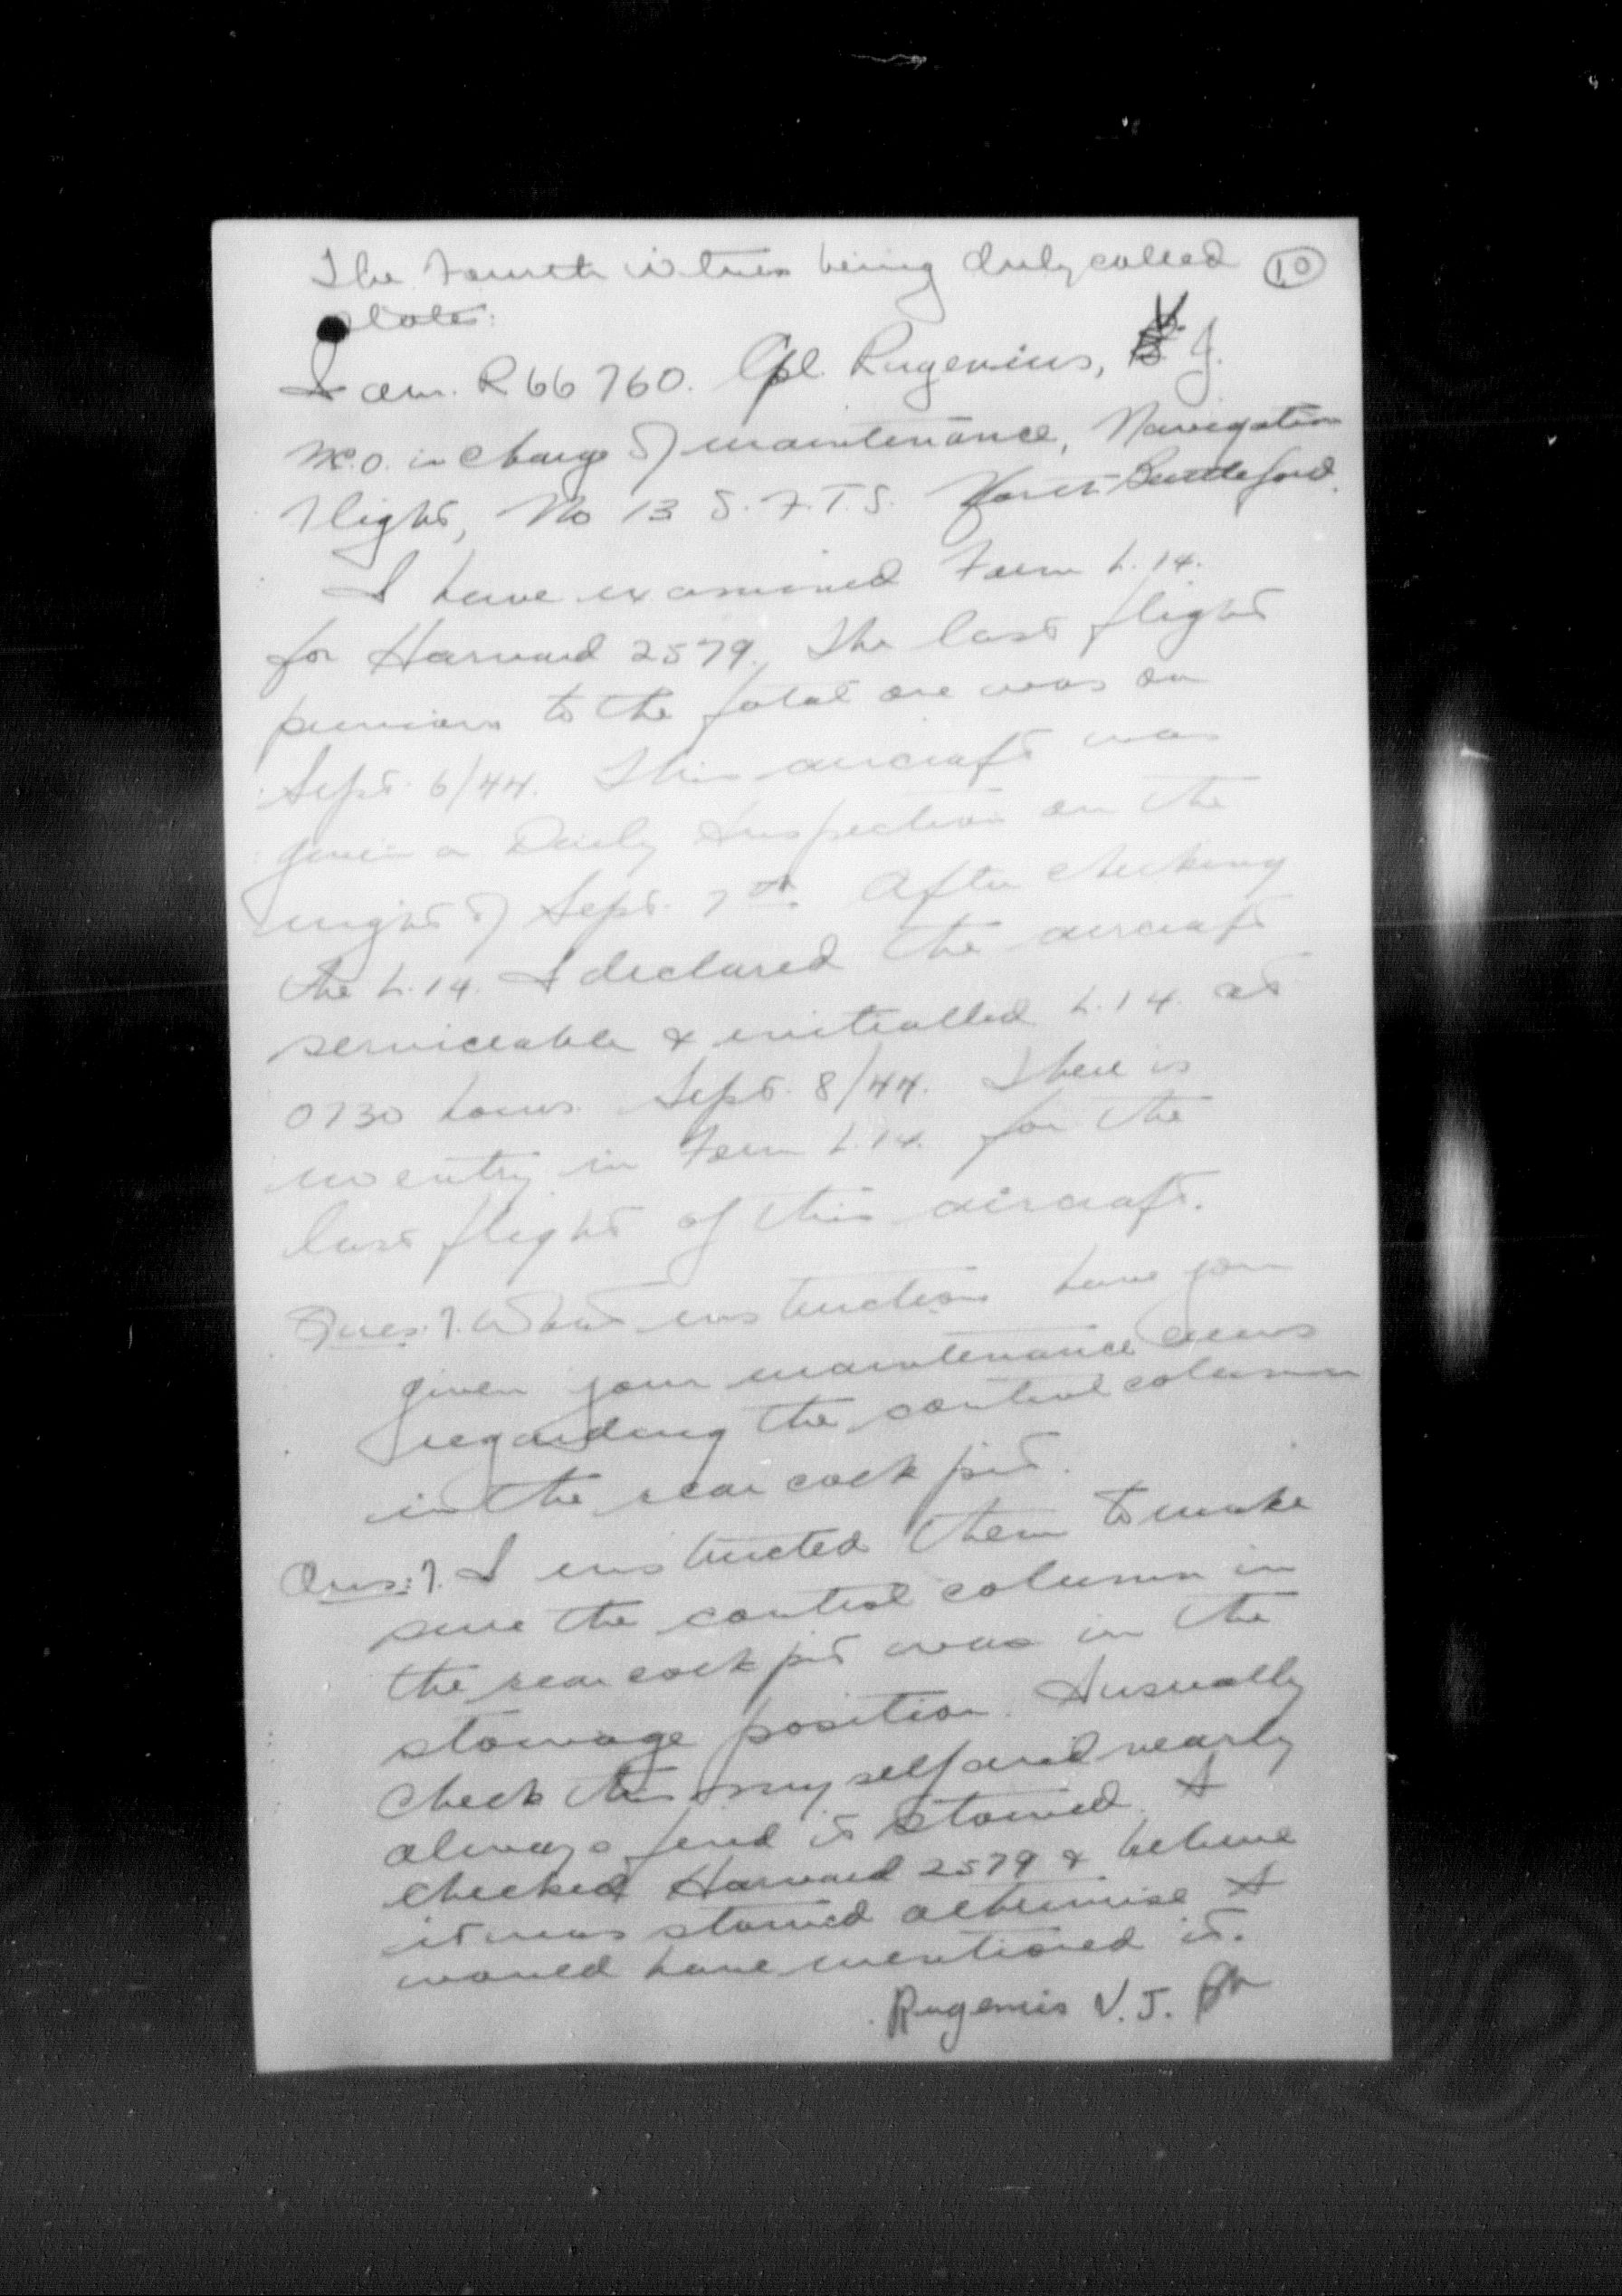 The Fourth witness being duly called 10
states:
I am. R66760. Cpl. Rugenius, V. J.
N.C.O. in charge of maintenance, Navigation
Flight, No 13 S.F.T.S. North Battleford.
I have examined Form L.14.
for Harvard 2579. The last flight
previous to the fatal one was on
Sept. 6/44. This aircraft was
given a Daily Inspection on the
night of Sept. 7th. After checking
the L.14. I declared the aircraft
serviceable & initialled L.14. at
0730 hours Sept. 8/44. There is
no entry in Form L.14. for the
last flight of this aircraft.
Ques: 7. What instructions have you
given your maintenance crews
regarding the control column
in the rear cock pit.
Ans: 7. I instructed them to make
sure the control column in
the rear cock pit was in the
stowage position. I usually
check this myself and nearly
always find it stowed. I
checked Harvard 2579 & believe
it was stowed otherwise I
would have mentioned it.
Rugenis V. J.